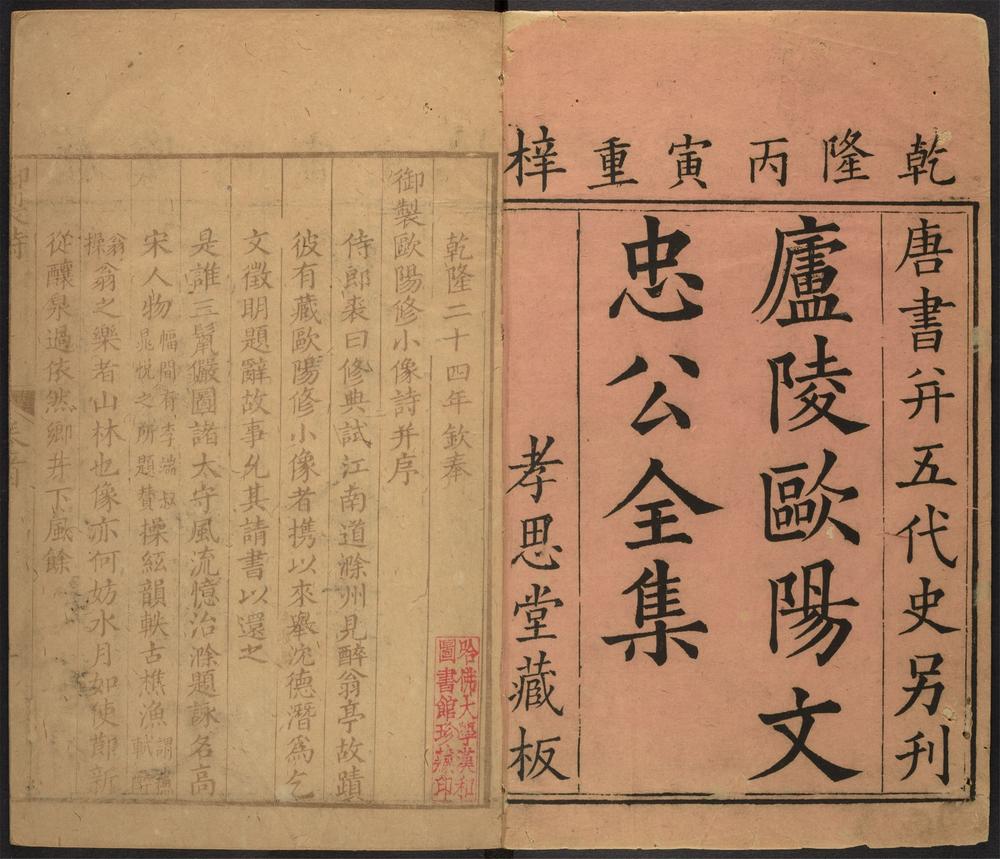 乾隆丙寅重梓
唐書并五代史另刊
廬陵歐陽文
忠公全集
孝思堂藏板
哈佛大學漢和
圖書館珍藏印
乾隆二十四年欽奉
御製歐陽修小像詩并序
侍郎裘曰修典試江南道滁州見醉翁亭故蹟
彼有藏歐陽修小像者携以來舉沈德潛爲乞
文徵明題辭故事允其請書以還之
是誰三鬣儼圖諸太守風流憶治滁題詠名高
宋人物幅間有李端叔晁悅之所題贊操絃韻軼古樵漁
翁翁之樂者山林也像亦何妨水月如使節新
從釀泉過依然鄉井下風餘